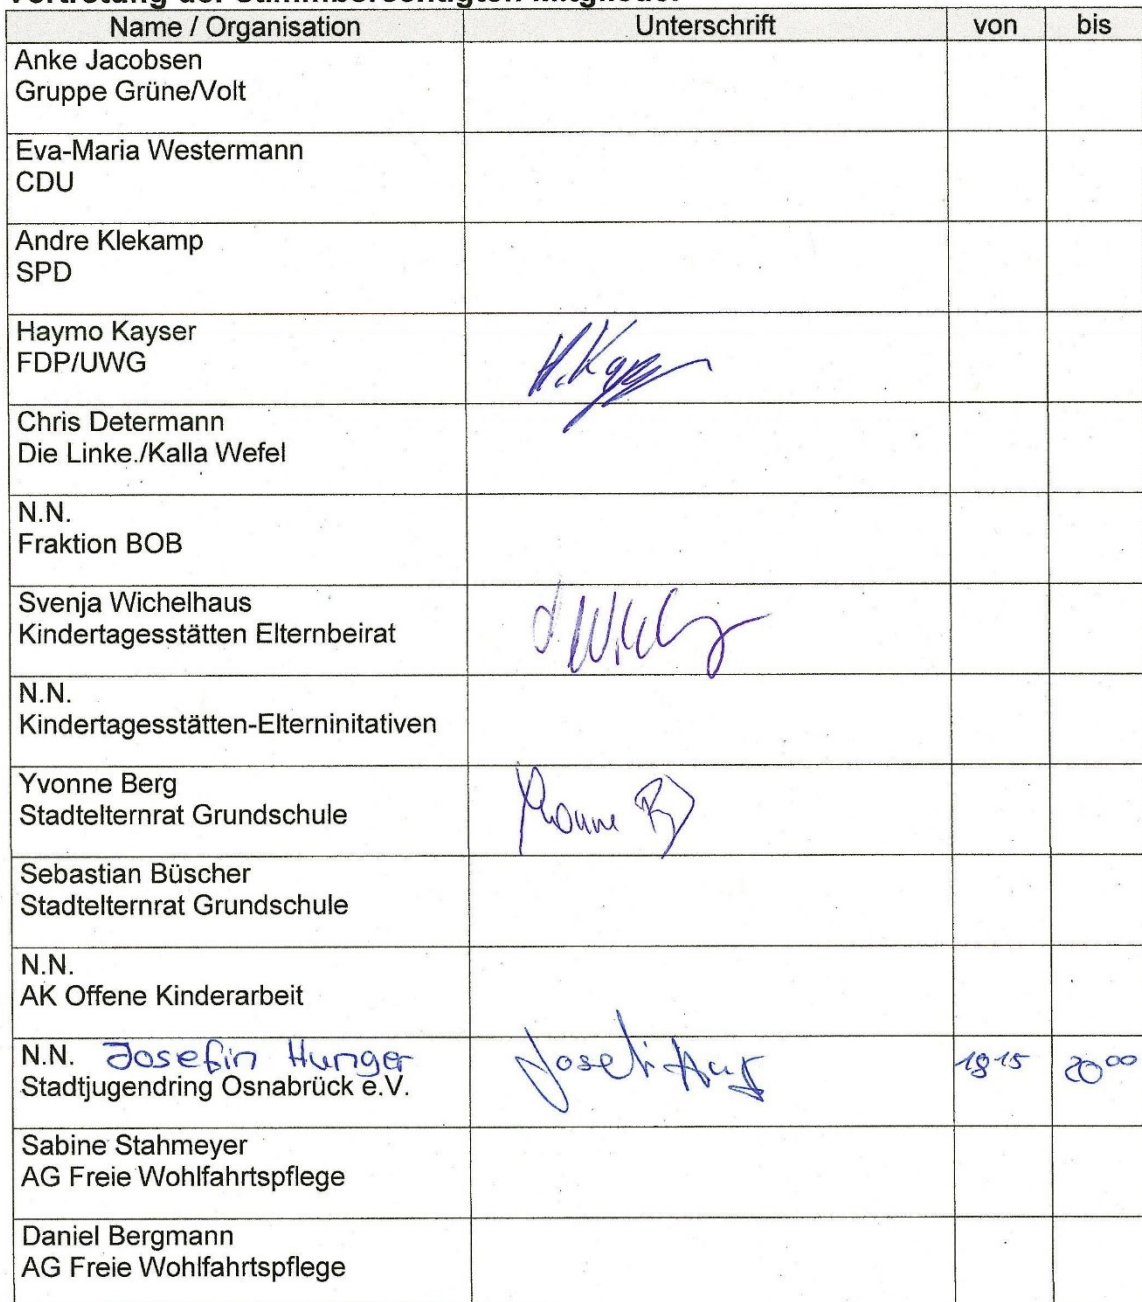 Vertretung der stimmberechtigten Mitglieder
Name / Organisation Unterschrift von bis
Anke Jacobsen
Gruppe Grüne/Volt
Eva-Maria Westermann
CDU
Andre Klekamp
SPD
Haymo Kayser
FDP/UWG
H. Kayser
Chris Determann
Die Linke./Kalla Wefel
N.N.
Fraktion BOB
Svenja Wichelhaus
Kindertagesstätten Elternbeirat
N.N.
Kindertagesstätten-Elterninitativen
Yvonne Berg
Stadtelternrat Grundschule
Yvonne
Sebastian Büscher
Stadtelternrat Grundschule
N.N.
AK Offene Kinderarbeit
N.N. Josefin Hunger 18 15 20 00
Stadtjugendring Osnabrück e.V.
Sabine Stahmeyer
AG Freie Wohlfahrtspflege
Daniel Bergmann
AG Freie Wohlfahrtspflege